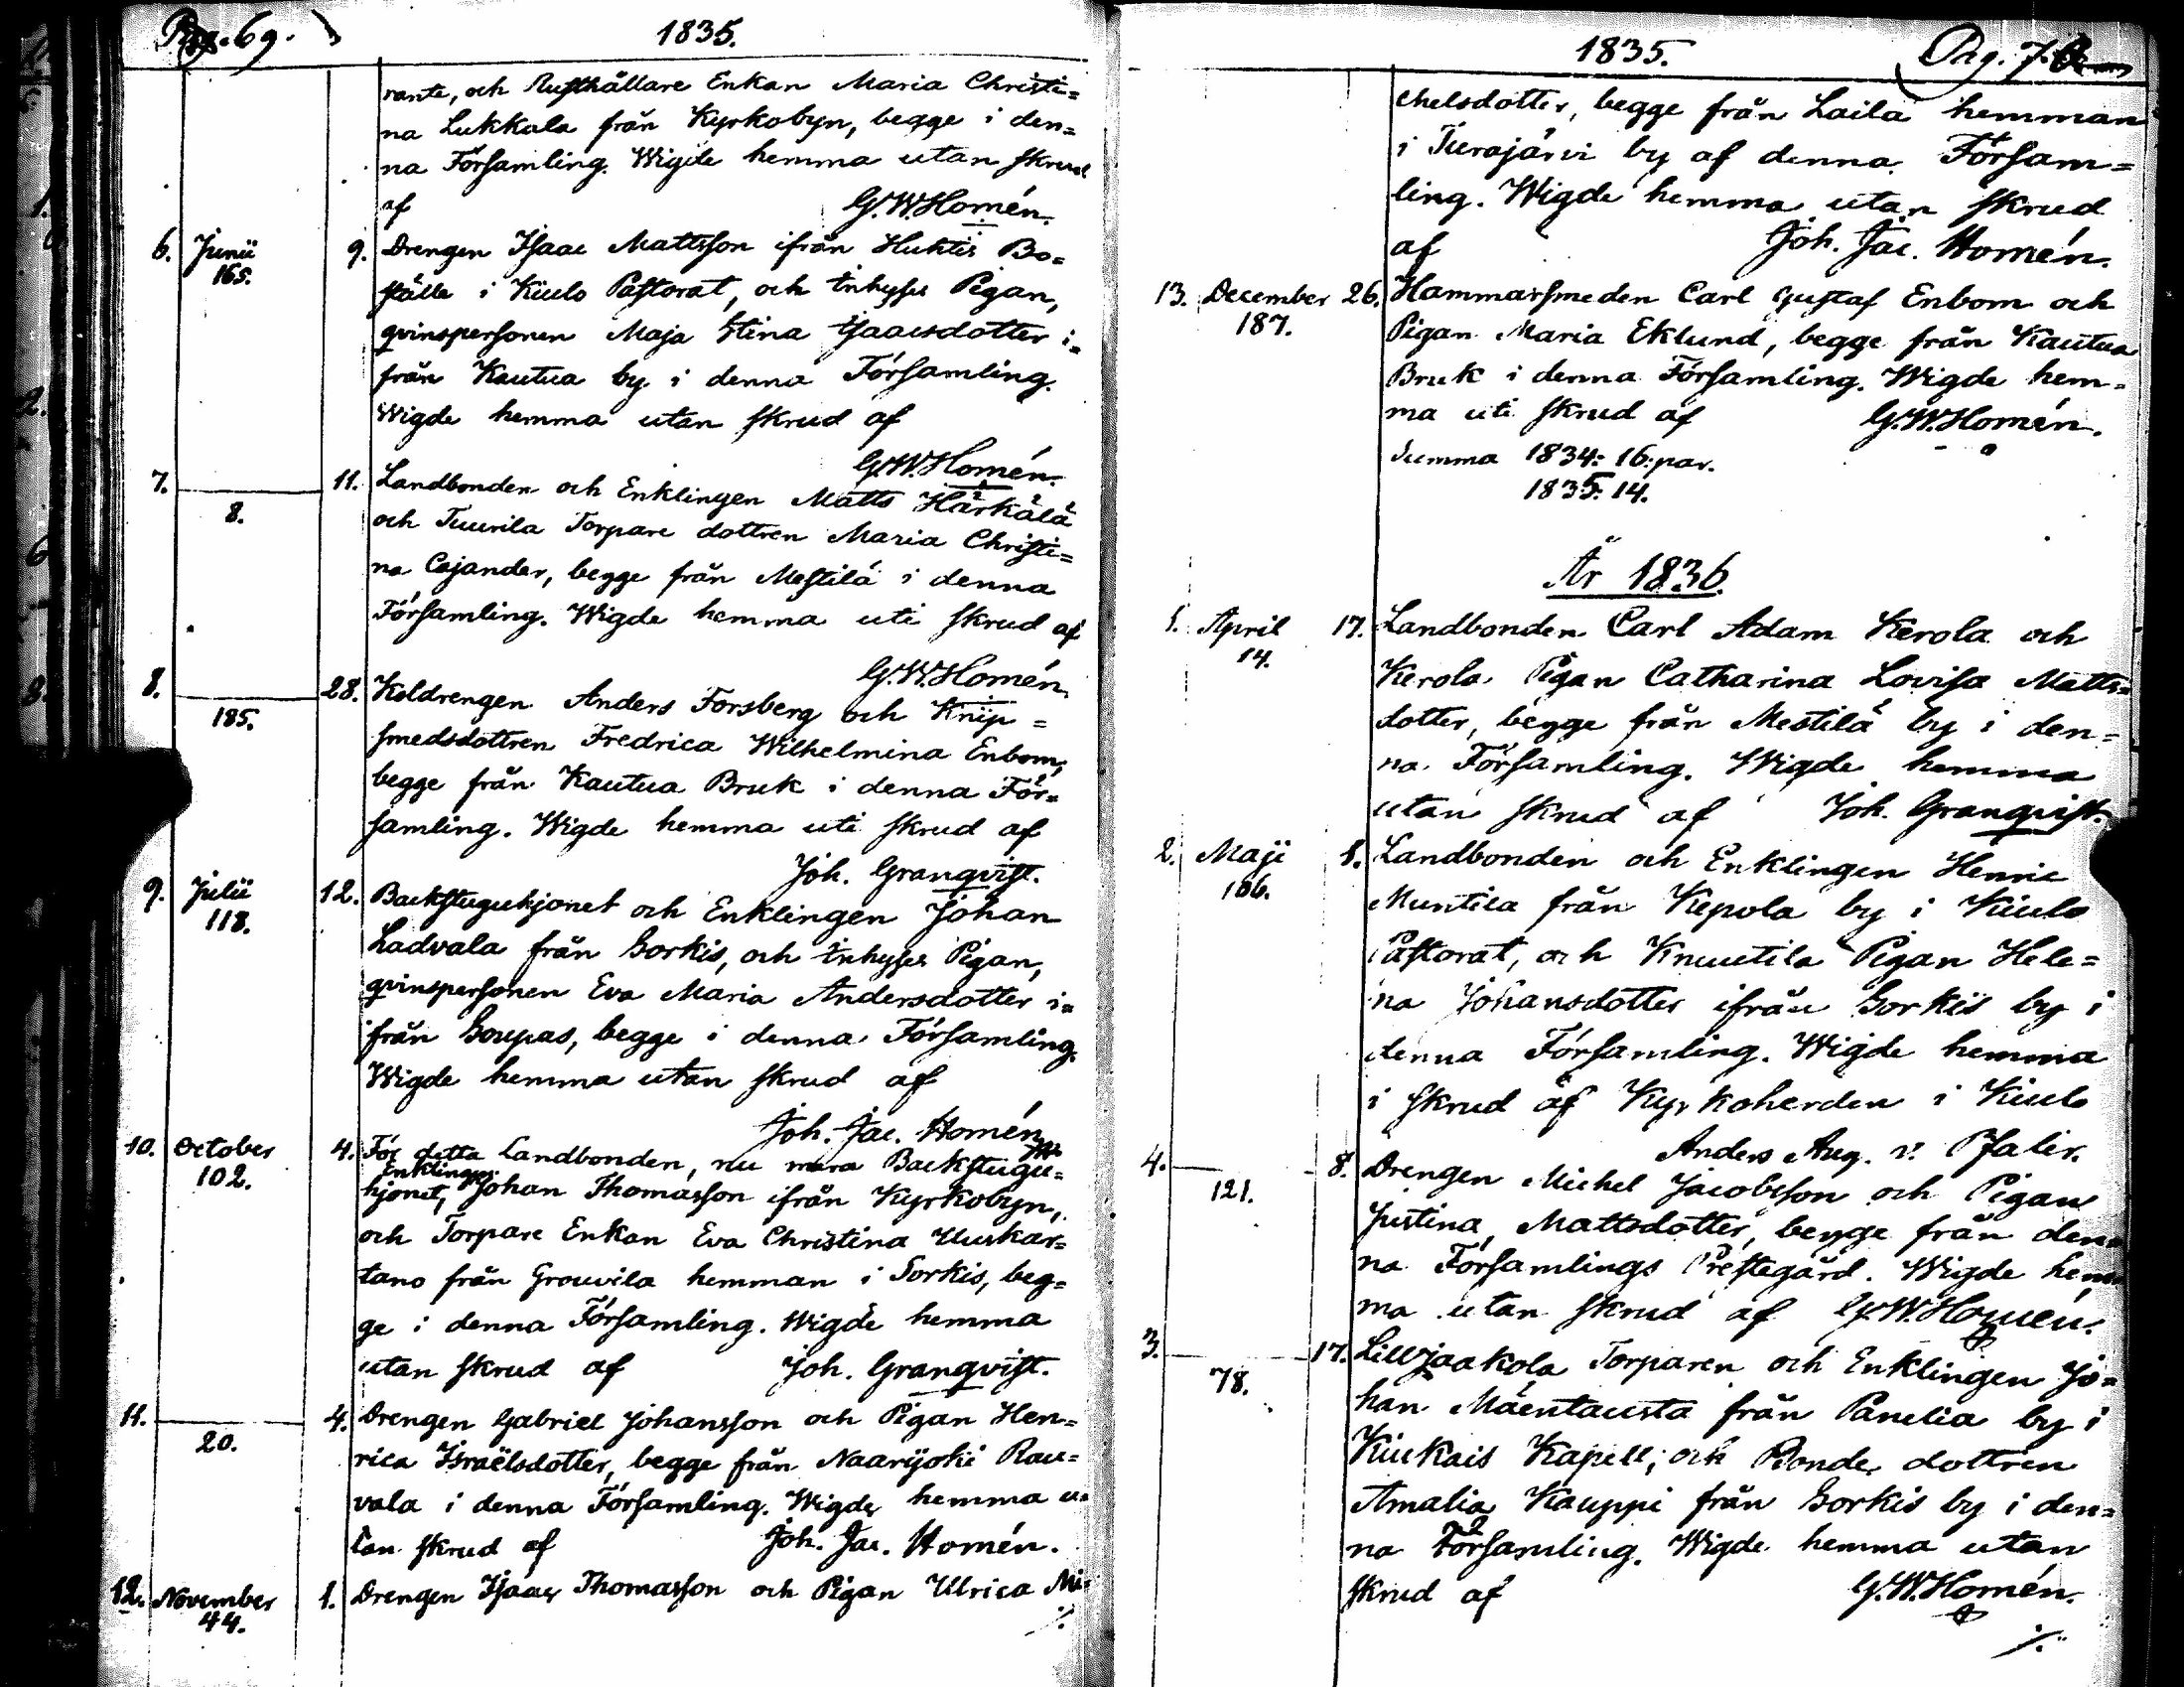 Pag. 69.
1835.
rante, och Rusthållare Enkan Maria Christi=
na Lukkala från Kyrkobyn, begge i den=
na Församling. Wigde hemma utan skrud
af G.W.Homén.
6. Junii 9. Drengen Isaac Mattsson ifrån Huktis Bo=
165.
ställe i Kiulo Pastorat, och Inhyses Pigan,
qvinspersonen Maja Stina Isaacsdotter i=
från Kautua by i denna Församling.
Wigde hemma utan skrud af
G.W.Homén.
7. 11. Landbonden och Enklingen Matts Härkälä
8.
och Tuurila Torpare dottren Maria Christi=
na Cajander, begge från Mestilä i denna
Församling. Wigde hemma uti skrud af
G.W.Homén.
8. 28. Koldrengen Anders Forsberg och Knip=
185.
smedsdottren Fredrica Wilhelmina Enbom,
begge från Kautua Bruk i denna För=
samling. Wigde hemma uti skrud af
Joh. Granqvist.
9. Julii 12. Backstuguhjonet och Enklingen Johan
118.
Ladvala från Sorkis, och Inhyses Pigan,
qvinspersonen Eva Maria Andersdotter i=
från Soupas, begge i denna Församling.
Wigde hemma utan skrud af
Joh. Jac. Homén
10. October 4. För detta Landbonden, nu mera Backstugu=
102.
Enklingen
hjonet, Johan Thomasson ifrån Kyrkobyn,
och Torpare Enkan Eva Christina Uuskar=
tano från Grouvila hemman i Sorkis, beg=
ge i denna Församling. Wigde hemma
utan skrud af Joh. Granqvist.
11. 4. Drengen Gabriel Johansson och Pigan Hen=
20.
rica Israëlsdotter, begge från Naarijoki Rau=
vala i denna Församling. Wigde hemma u=
tan skrud af Joh. Jac. Homén.
12. November 1. Drengen Isaac Thomasson och Pigan Ulrica Mi=
44.
./.
1835.
Pag. 70
chelsdotter, begge från Laila hemman
i Turajärvi by af denna Försam=
ling. Wigde hemma utan skrud
af Joh. Jac. Homén.
13. December 26. Hammarsmeden Carl Gustaf Enbom och
187.
Pigan Maria Eklund, begge från Kautua
Bruk i denna Församling. Wigde hem=
ma uti skrud af G.W.Homén.
Summa 1834: 16: par.
1835: 14.
År 1836.
1. April 17. Landbonden Carl Adam Kerola och
14.
Kerola Pigan Catharina Lovisa Matts=
dotter, begge från Mestilä by i den=
na Församling. Wigde hemma
utan skrud af Joh. Granqvist.
2. Maji 8. Landbonden och Enklingen Henric
106.
Muntila från Kepola by i Kiulo
Pastorat, och Knuutila Pigan Hele=
na Johansdotter ifrån Sorkis by i
denna Församling. Wigde hemma
i skrud af Kyrkoherden i Kiulo
Anders Aug. v. Pfaler.
4. 8. Drengen Michel Jacobsson och Pigan
121.
Justina Mattsdotter, begge från den=
na Församlings Prestegård. Wigde hem=
ma utan skrud af G.W.Homén.
3. 17. Lilljaakola Torparen och Enklingen Jo=
78.
han Mäentausta från Panelia by i
Kiukais Kapell, och Bonde dottren
Amalia Kauppi från Sorkis by i den=
na Församling. Wigde hemma utan
skrud af G.W.Homén.
./.